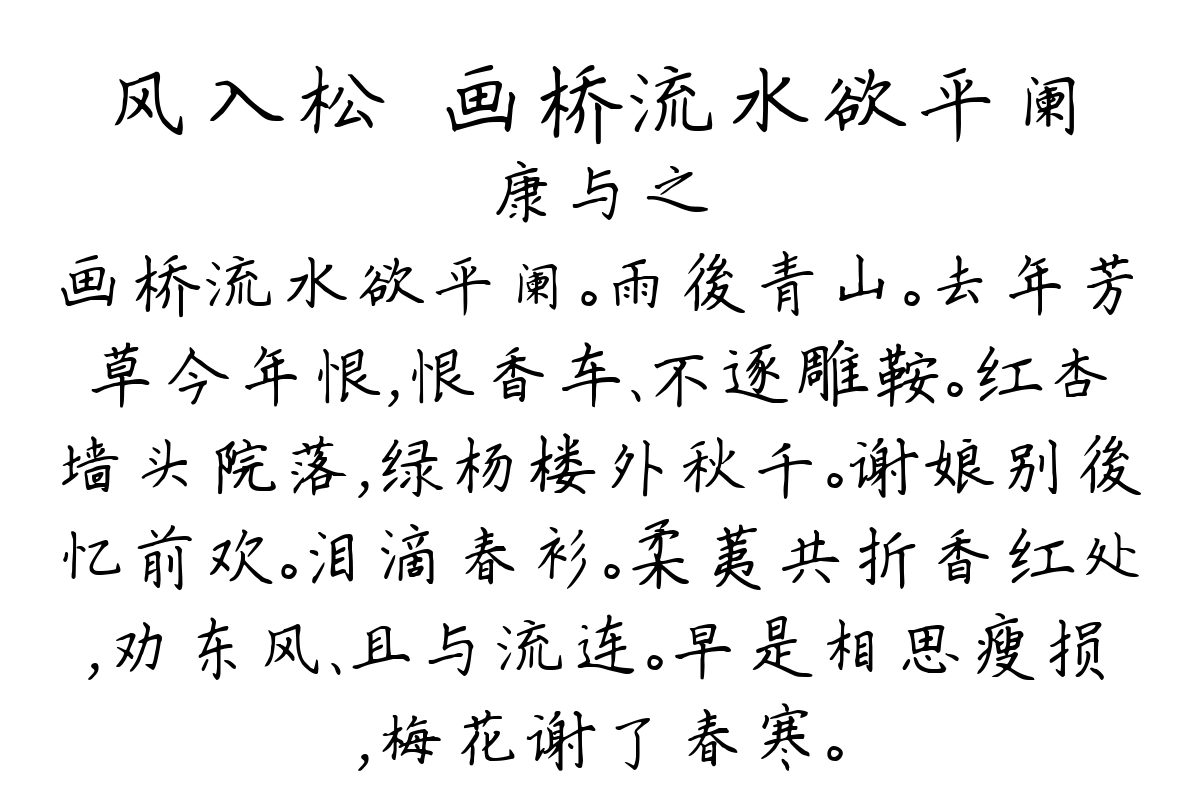 风入松 画桥流水欲平阑
康与之
画桥流水欲平阑。雨後青山。去年芳
草今年恨,恨香车、不逐雕鞍。红杏
墙头院落,绿杨楼外秋千。谢娘别後
忆前欢。泪滴春衫。柔荑共折香红处
,劝东风、且与流连。早是相思瘦损
,梅花谢了春寒。